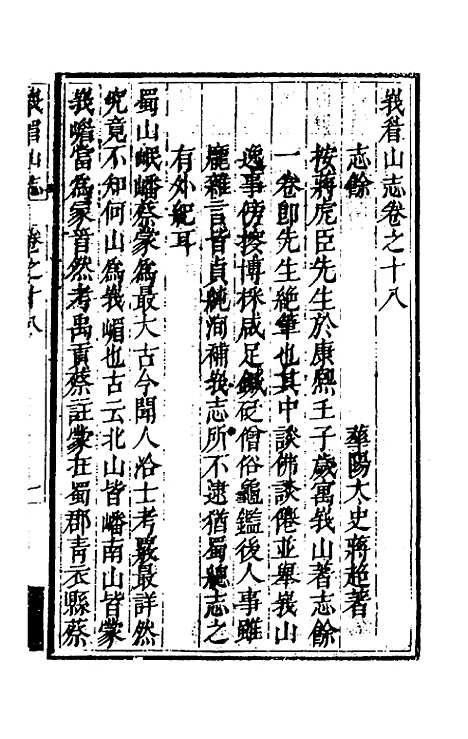 峩眉山志卷之十八
志餘
華陽太史蔣超著
按蔣虎臣先生於康熙壬子歲寓峩山著志餘
一卷即先生絶筆也其中談佛談僊並舉峩山
逸事傍按博採咸足鍼砭僧俗龜鑑後人事雖
龐雜言皆貞純洵補峩志所不逮猶蜀總志之
有外紀耳
蜀山岷嶓蔡蒙爲最大古今聞人洽士考覈最詳然
究竟不知何山爲峩嵋也古云北山皆嶓南山皆蒙
峩嵋當爲蒙音然考禹貢蔡註蒙在蜀郡青衣縣蔡
峩眉山志
卷之十八
一